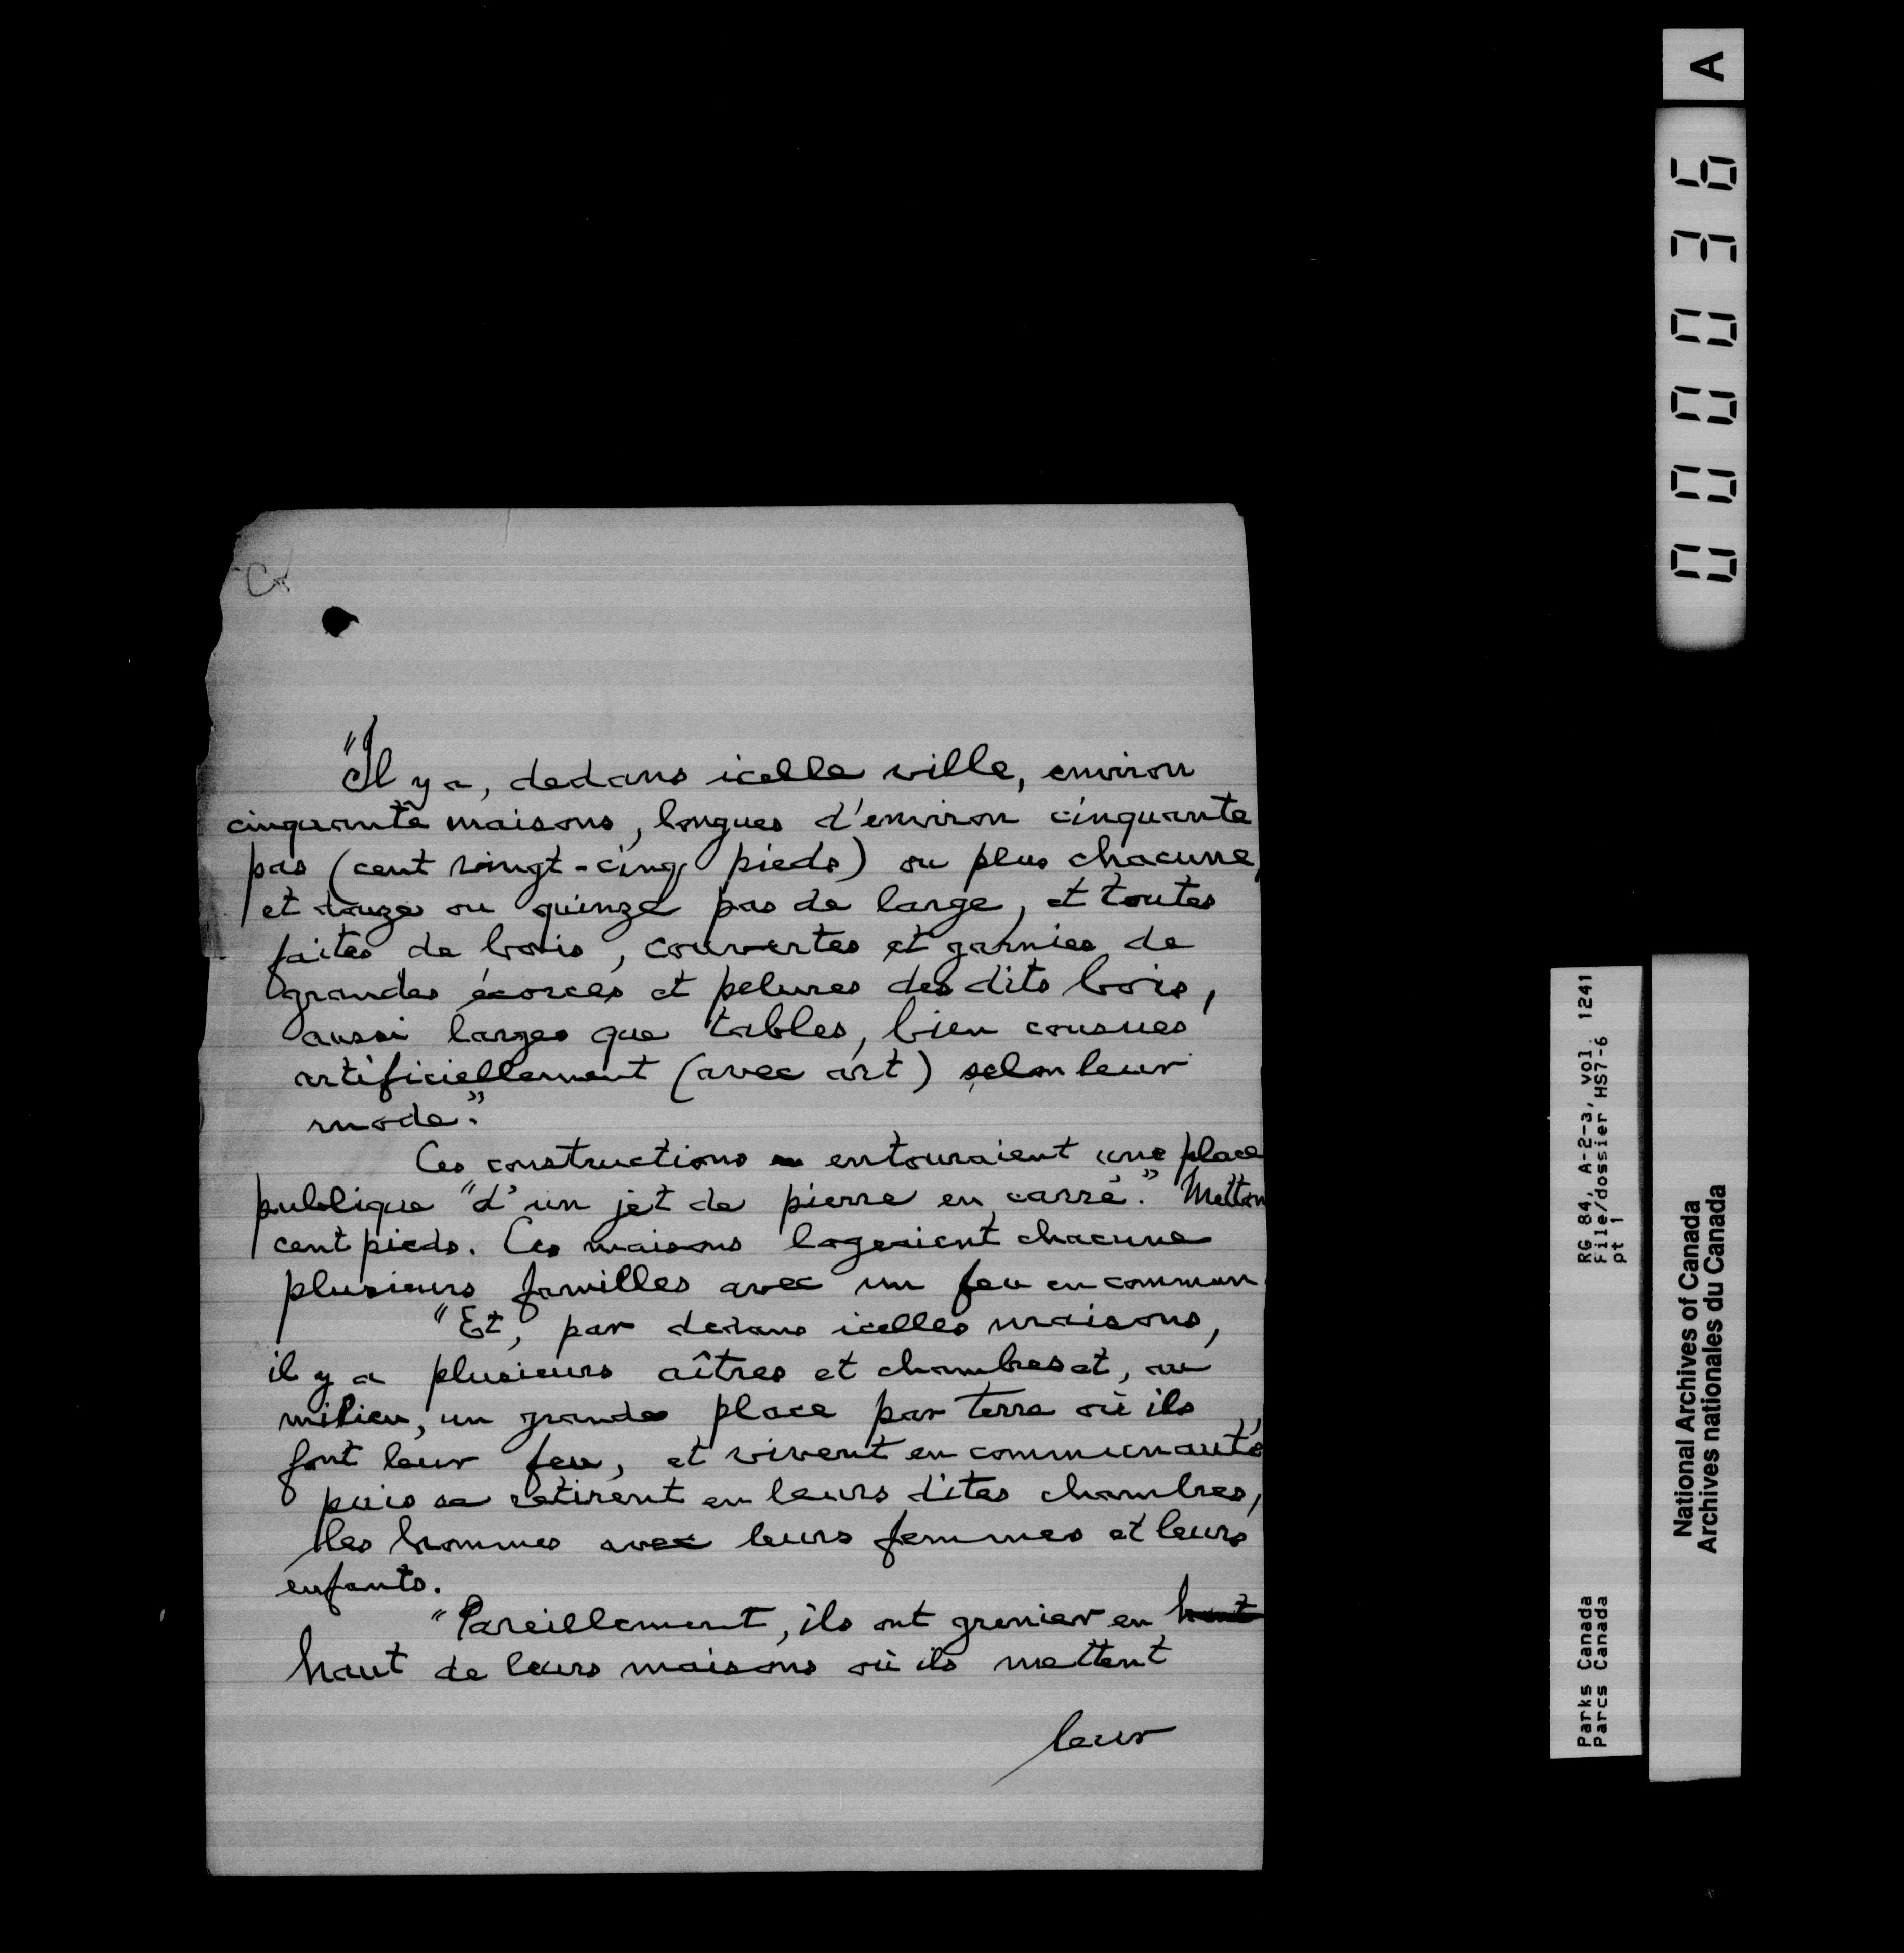 "Il y a, dedans icelle ville, environ
cinquante maisons, longues d'environ cinquante
pas (cent vingt-cinq pieds) ou plus chacune,
et douze ou quinze pas de large, et toutes
faites de bois, couvertes et garnies de
grandes écorces et pelures des dits bois,
aussi larges que tables, bien cousues
artificiellement (avec art) selon leur
mode."
Ces constructions entouraient une place
publique "d'un jet de pierre en carré." Metton
cent pieds. Ces maisons logeaient chacune
plusieurs familles avec un feu en commun.
"Et, par dedans icelles maisons,
il y a plusieurs aîtres et chambres et, au
milieu, un grande place par terre où ils
font leur feu, et vivent en communauté
puis se retirent en leurs dites chambres,
les hommes avec leurs femmes et leurs
enfants.
"Pareillement, ils ont grenier en haut
haut de leurs maisons où ils mettent
leur
A
000036
RG 84, A-2-3, vol. 1241
File/dossier HS7-6
pt 1
Parks Canada
Parcs Canada
National Archives of Canada
Archives nationales du Canada